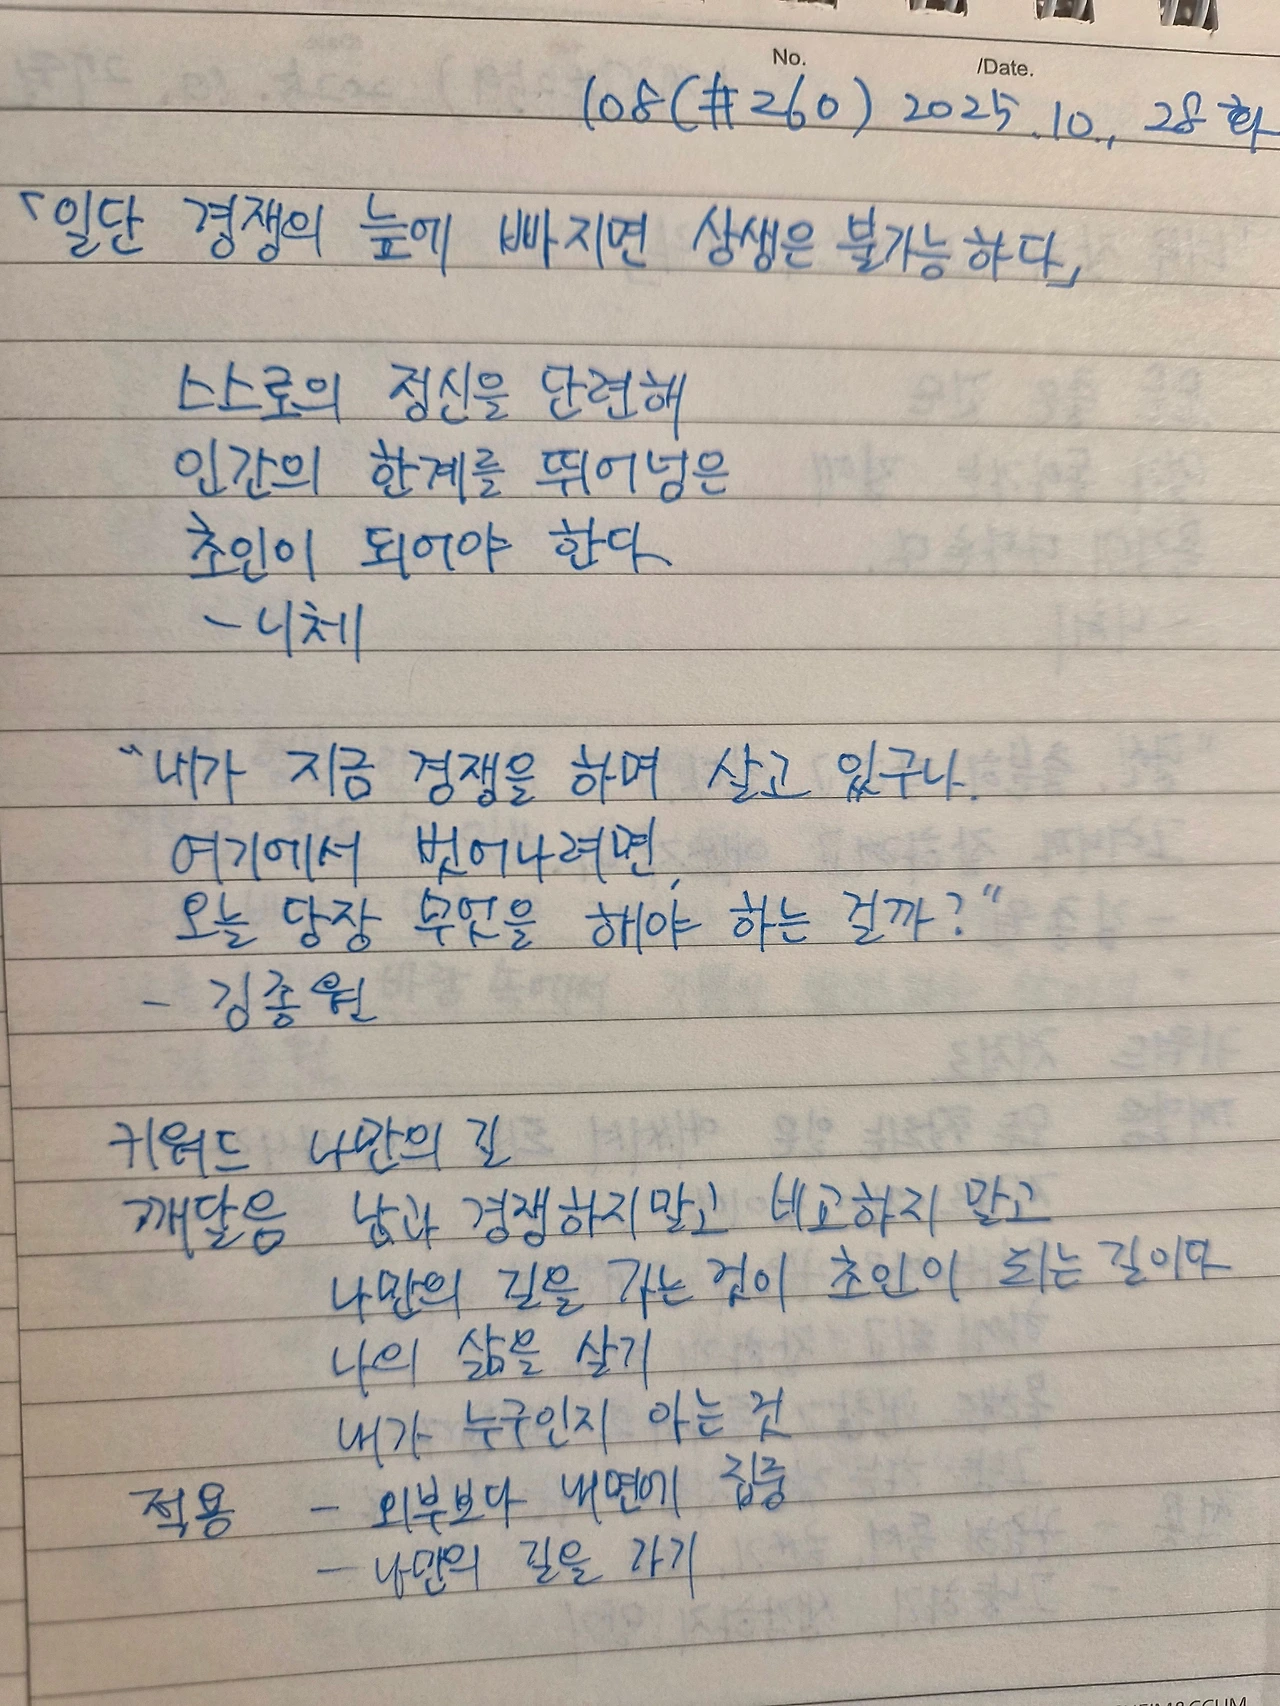 No. /Date.
108(#260) 2025.10. 28 화
「일단 경쟁의 늪에 빠지면 상생은 불가능하다」
스스로의 정신을 단련해
인간의 한계를 뛰어넘은
초인이 되어야 한다
- 니체
"내가 지금 경쟁을 하며 살고 있구나.
여기에서 벗어나려면,
오늘 당장 무엇을 해야 하는 걸까?"
- 김종원
키워드 나만의 길
깨달음 남과 경쟁하지말고 비교하지 말고
나만의 길을 가는 것이 초인이 되는 길이다
나의 삶을 살기
내가 누구인지 아는 것
적용 - 외부보다 내면에 집중
- 나만의 길을 가기